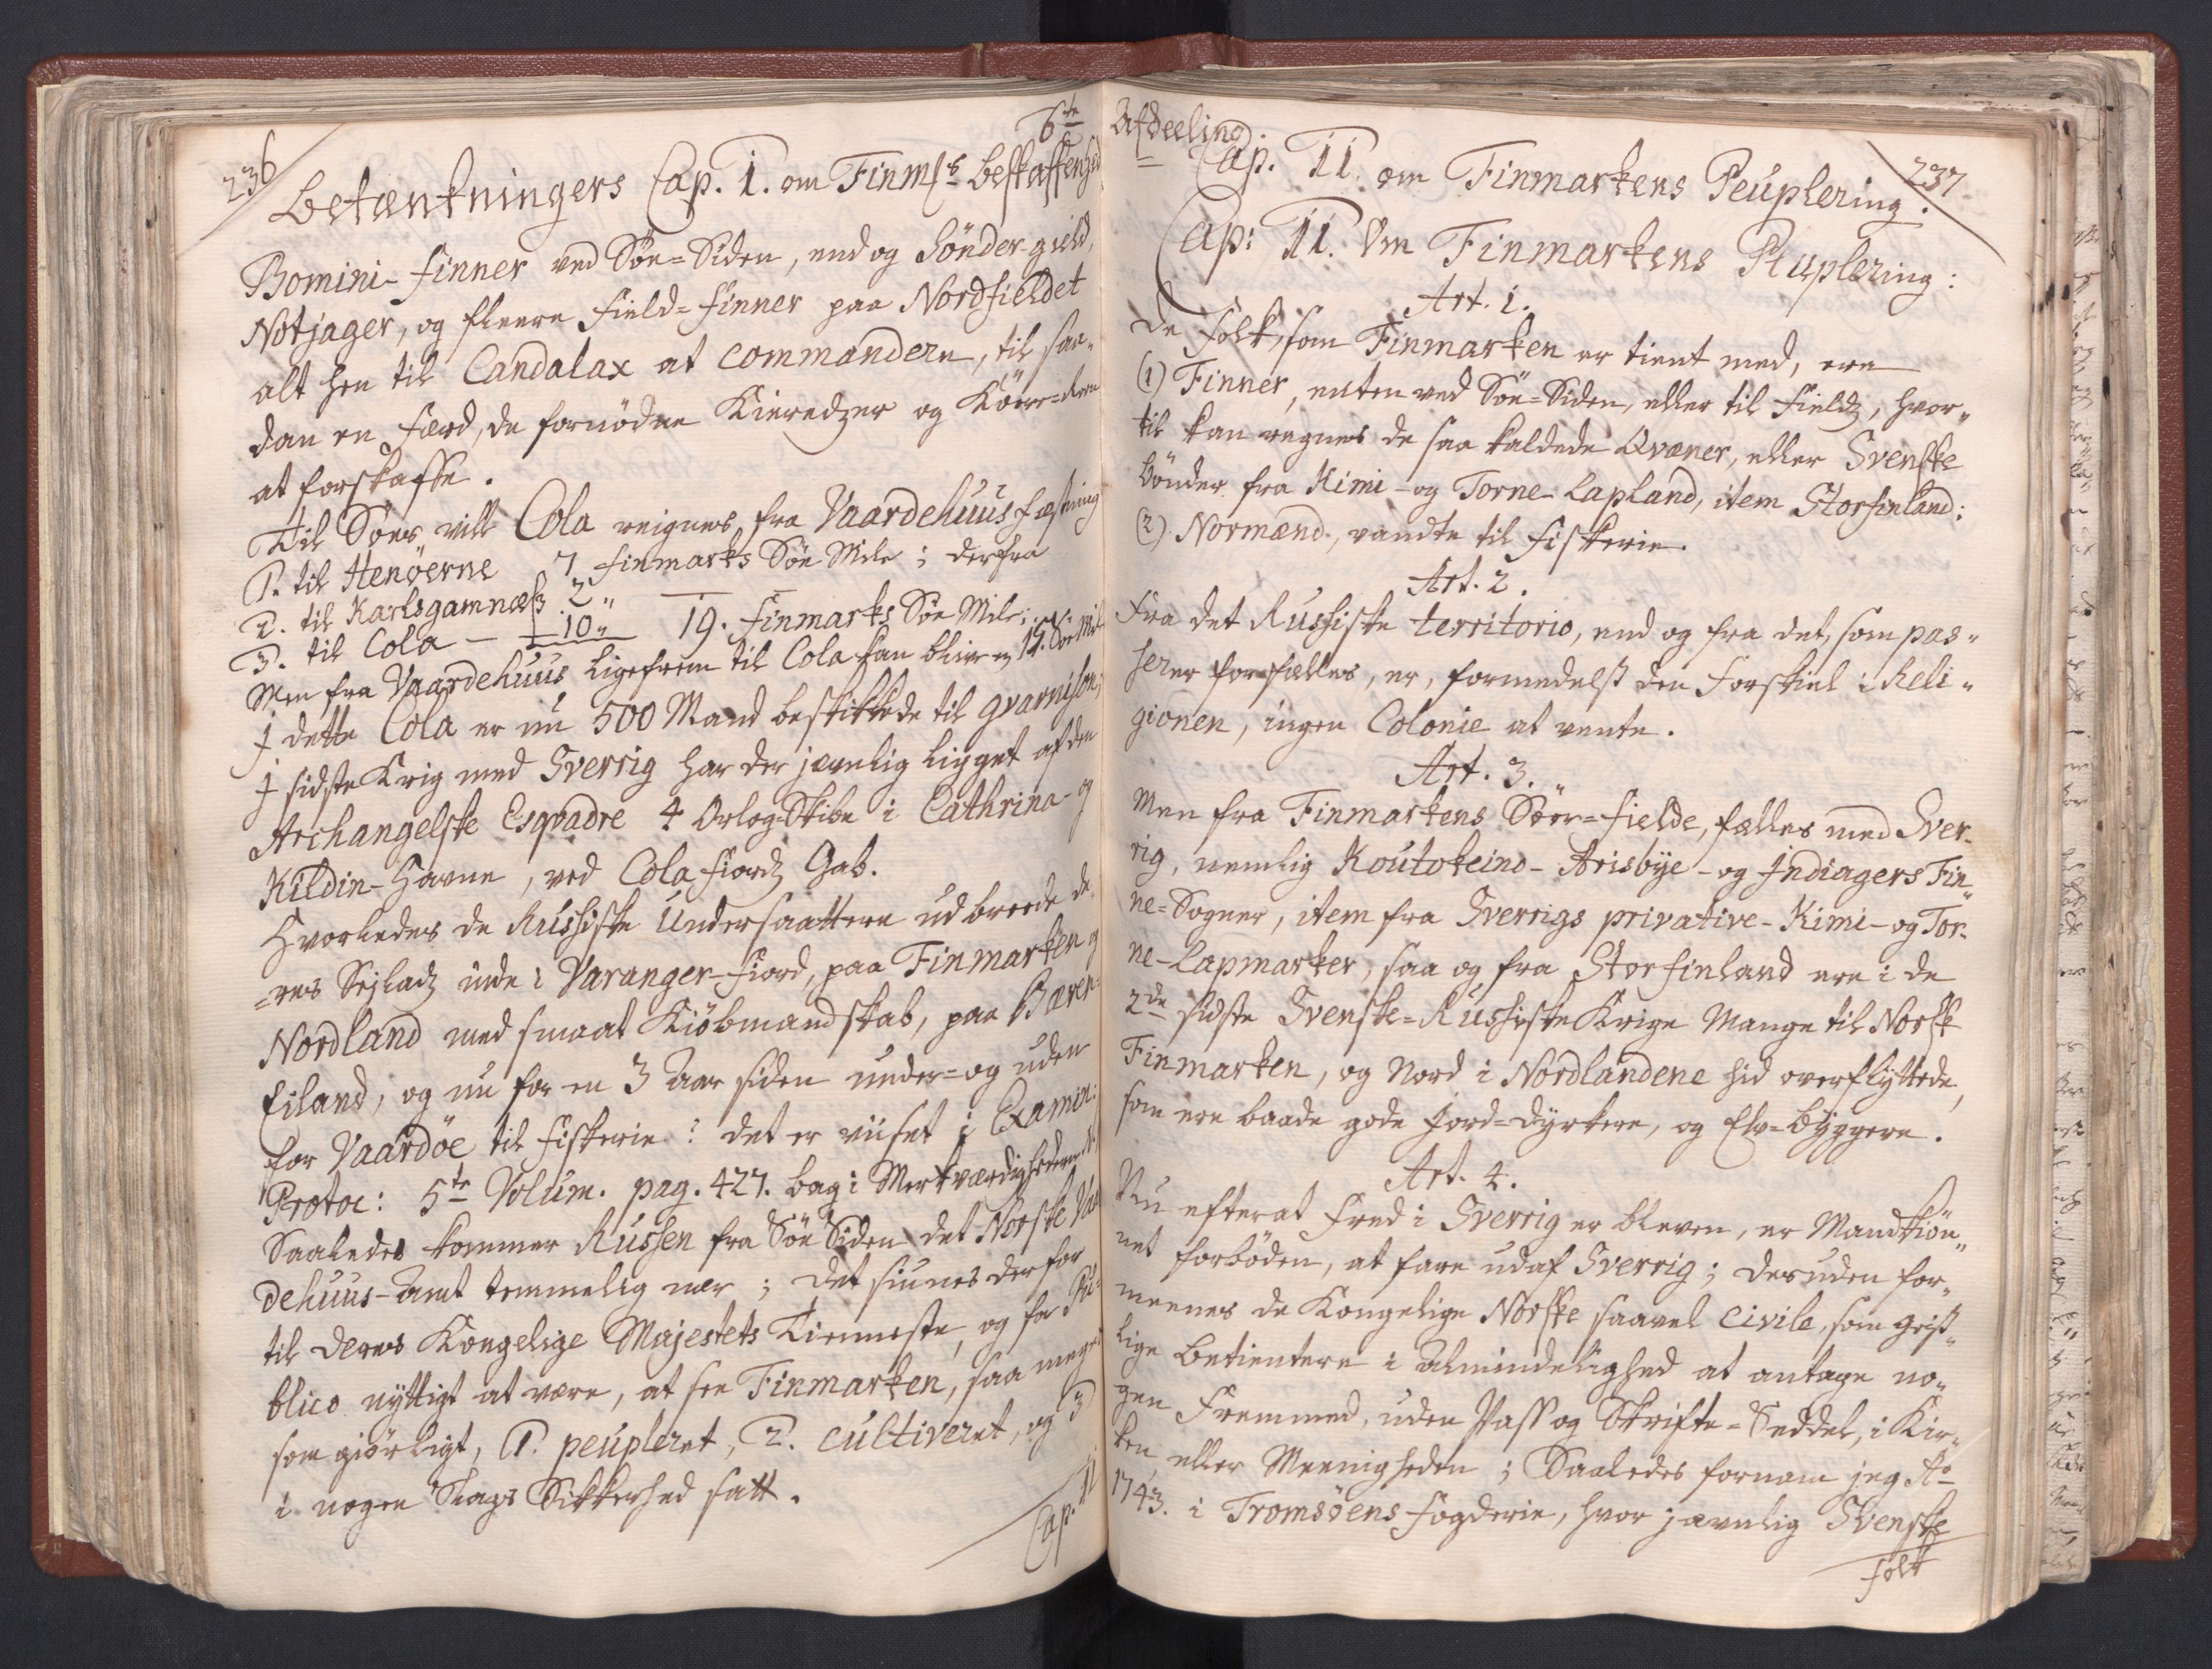 236
6te
Betænkningers Cap. I. om Finmks beskaffenhed
Bomini-finner ved Söe=Siden, end og Sönder-gield,
Notjager, og fleere Field=finner paa Nordfieldet
alt hen til Candalax at commandere, til saa-
dan en færd, de fornödne Kieredzer og Kiöre-dyr
at forskaffe.
Til Söes vill Cola reignes fra Vaardehuus fæstning
1. til Henöerne 7 finmarks Söe Mile; derfra
2. til Karlsgamnæs 2 „
3. til Cola — 10 „ 19. finmarks Söe Mile;
Men fra Vaardehuus ligefrem til Cola kan blive 15. Söe Mile
J dette Cola er nu 500 Mand beskikkede til gvarnison;
J sidste Krig med Sverrig har der jævnlig ligget af den
Archangelske Esqvadre 4 Orlog-Skibe i Cathrina- og
Kildin-Havne, ved Cola fiords Gab.
Hvorledes de Russiske Undersaattere udbreede de-
=res Sejlads inde i Varanger-fiord, paa Finmarken og
Nordland med smaat Kiöbmandskab, paa Bæren-
Eiland, og nu for en 3 Aar siden under- og uden
for Vaardöe til fiskerie: det er viiset i Examin:
Protoc: 5te Volum. pag. 427. bag i Merkværdighederne.
Saaledes kommer Russen fra Söe Siden det Norske Vaar
dehuus-Amt temmelig nær; det siunes derfor
til Deres Kongelige Majestets Tienneste, og for Pu-
blico nyttigt at være, at see Finmarken, saa meget
som giörligt, 1. peupleret, 2. cultiveret, og 3
i nogen Slags Sikkerhed satt.
Cap. II
Afdeeling.
237
Cap. II. om Finmarkens Peuplering.
Cap: II. Om Finmarkens Peuplering:
Art. 1.
De folk, som Finmarken er tient med, ere
(1) Finner, enten ved Söe=Siden, eller til fields, hvor„
til kan regnes de saa kaldede Qvæner, eller Svenske
bönder fra Kimi- og Torne-Lapland, item Storfinland:
(2) Normænd, vandte til fiskerie.
Art. 2.
Fra det Russiske territorio, end og fra det, som pas„
serer for fælles, er, formedelst den Forskiel i Reli„
gionen, ingen Colonie at vente.
Art. 3.
Men fra Finmarkens Söer=fielde, fælles med Sver-
rig, nemlig Koutokeino- Arisbÿe- og Jndiagers Fin„
ne=Sogner, item fra Sverrigs privative- Kimi- og Tor-
ne-Lapmarker, saa og fra Storfinland ere i de
2de sidste Svenske=Russiske Krige Mange til Norsk
Finmarken, og Nord i Nordlandene hid overflÿttede,
som ere baade gode Jord=Dÿrkere, og Elv=bÿggere.
Art. 4.
Nu efterat Fred i Sverrig er bleven, er Mandkiön„
net forböden, at fare ud af Sverrig; desuden for„
meenes de Kongelige Norske saavel civile, som geist„
lige betientere i Almindelighed at antage no„
gen Fremmed, uden Pass og Skrifte=Seddel, i Kir„
ken, eller Meenigheden; Saaledes fornam jeg Ao
1743. i Tromsöens fogderie, hvor jævnlig Svenske
folk